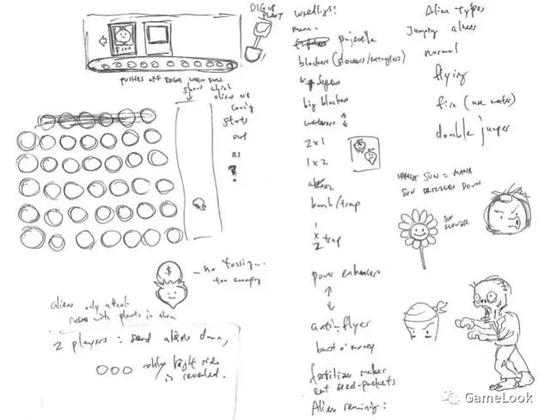 DIG UP
PLANT
PUSHES OFF EDGE WHEN FULL
show which
aliens are
coming
starts
out
as
?
$
no tossing...
too annoying
aliens only attack
rows with plants in them
2 players: send aliens down,
only right side
is revealed.
projectile
blockers
big blockers
2x1
1x2
bomb/trap
1
x
2 trap
power enhancers
anti-flyer
burst o' money
fertilizer maker
eat seed-packets
Aliens remaining:
Alien Types
Jumping aliens
normal
flying
fire (use water)
double jumper
SUN = MANA
SUN DRIZZLES DOWN
SUN
FLOWER
GameLook